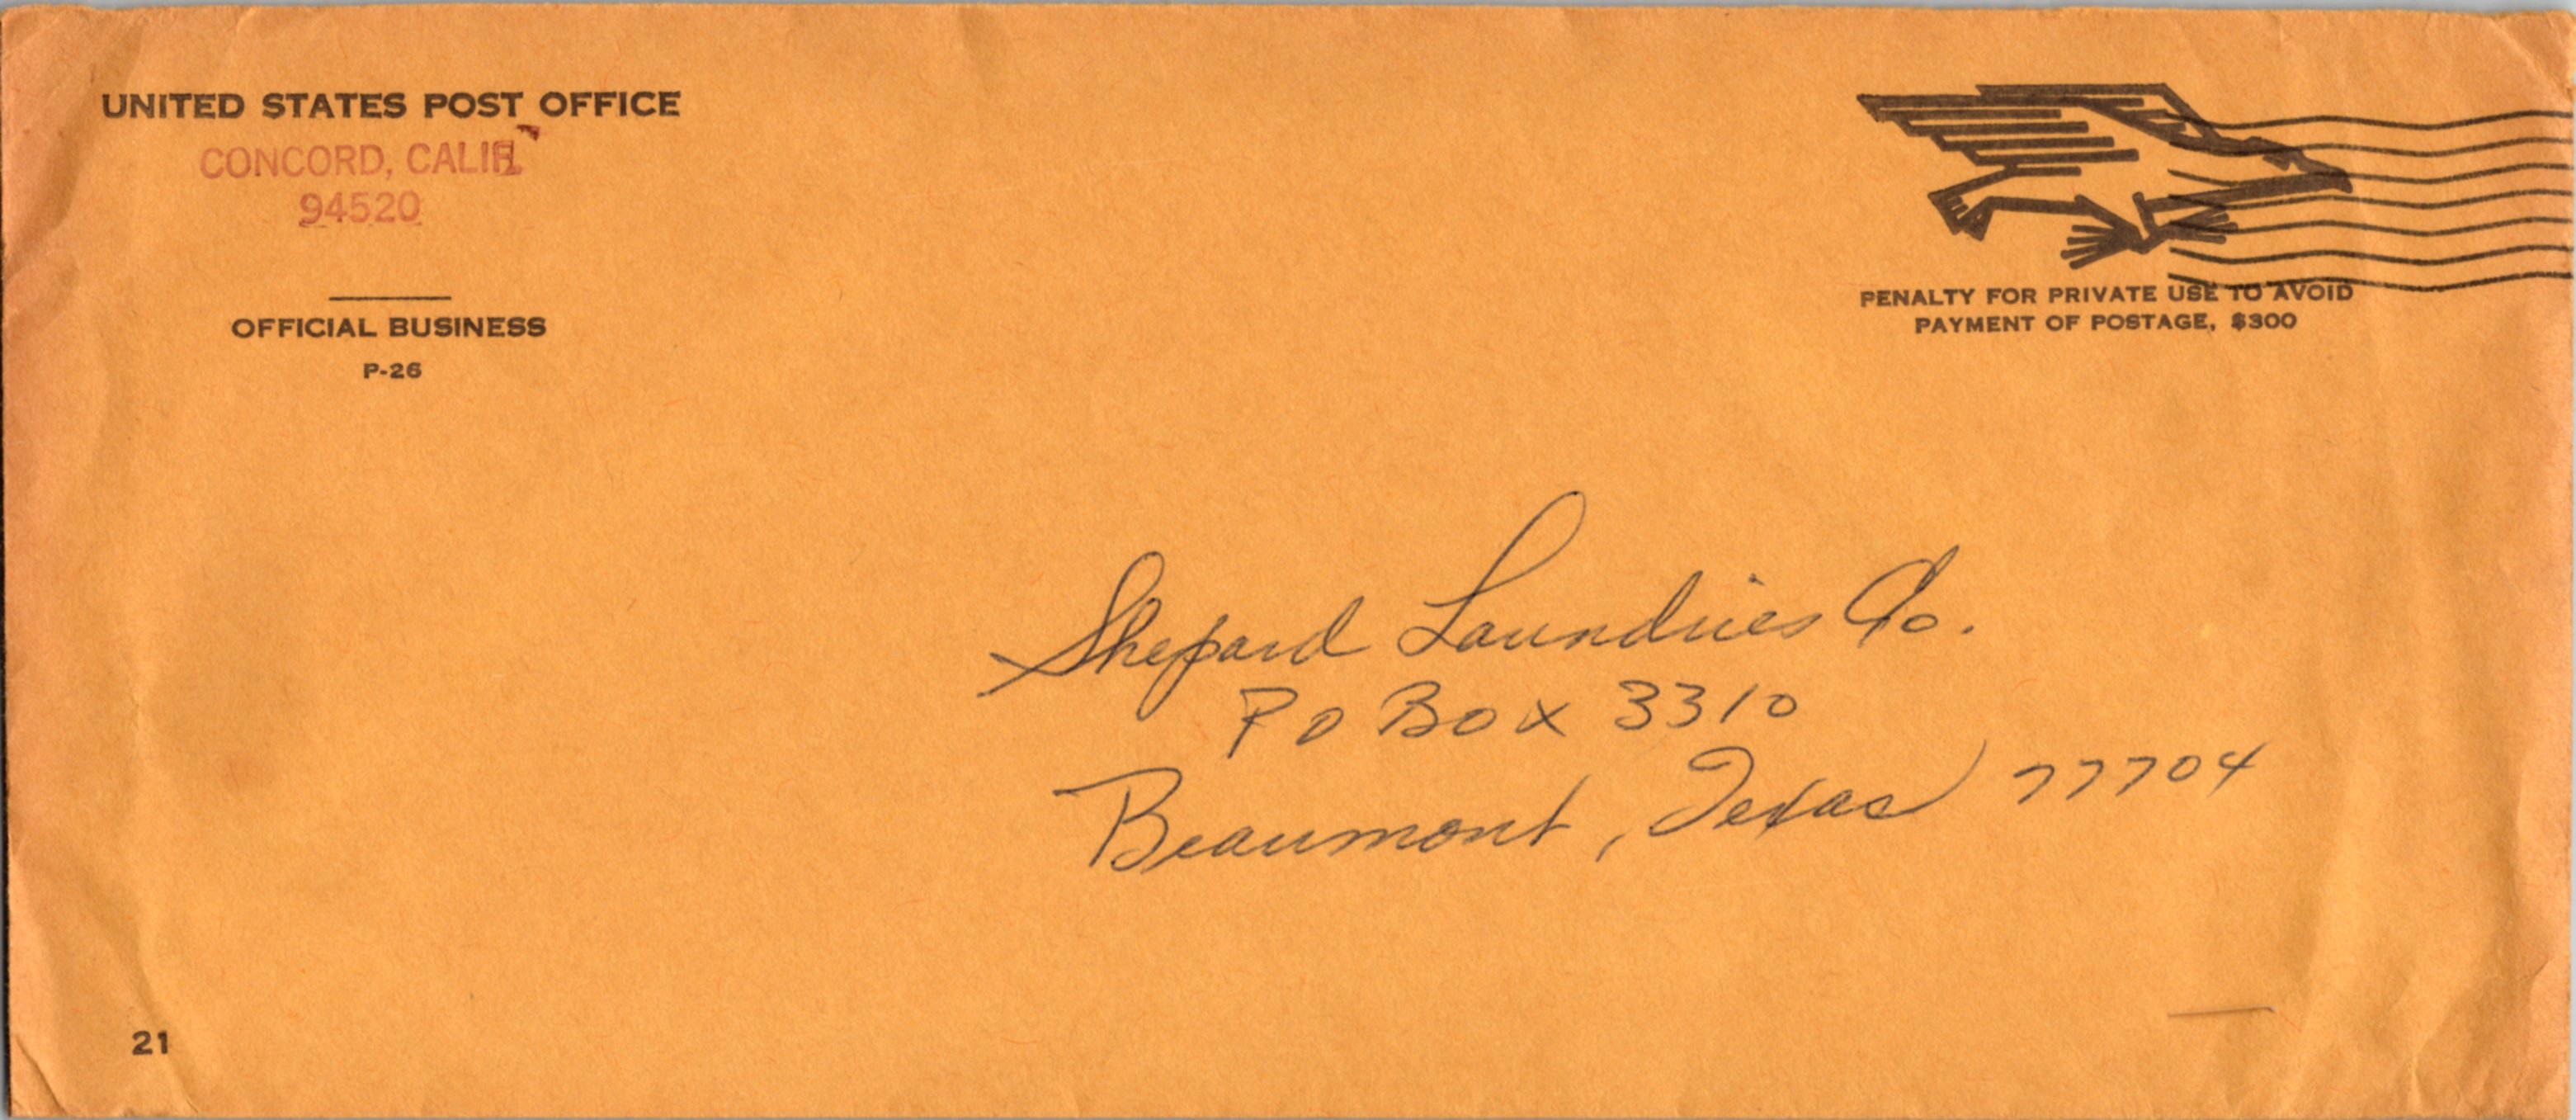 UNITED STATES POST OFFICE
CONCORD, CALIF.
94520
OFFICIAL BUSINESS
P-26
PENALTY FOR PRIVATE USE TO AVOID
PAYMENT OF POSTAGE, $300
Shepard Laundries Co.
PO Box 3310
Beaumont, Texas 77704
21